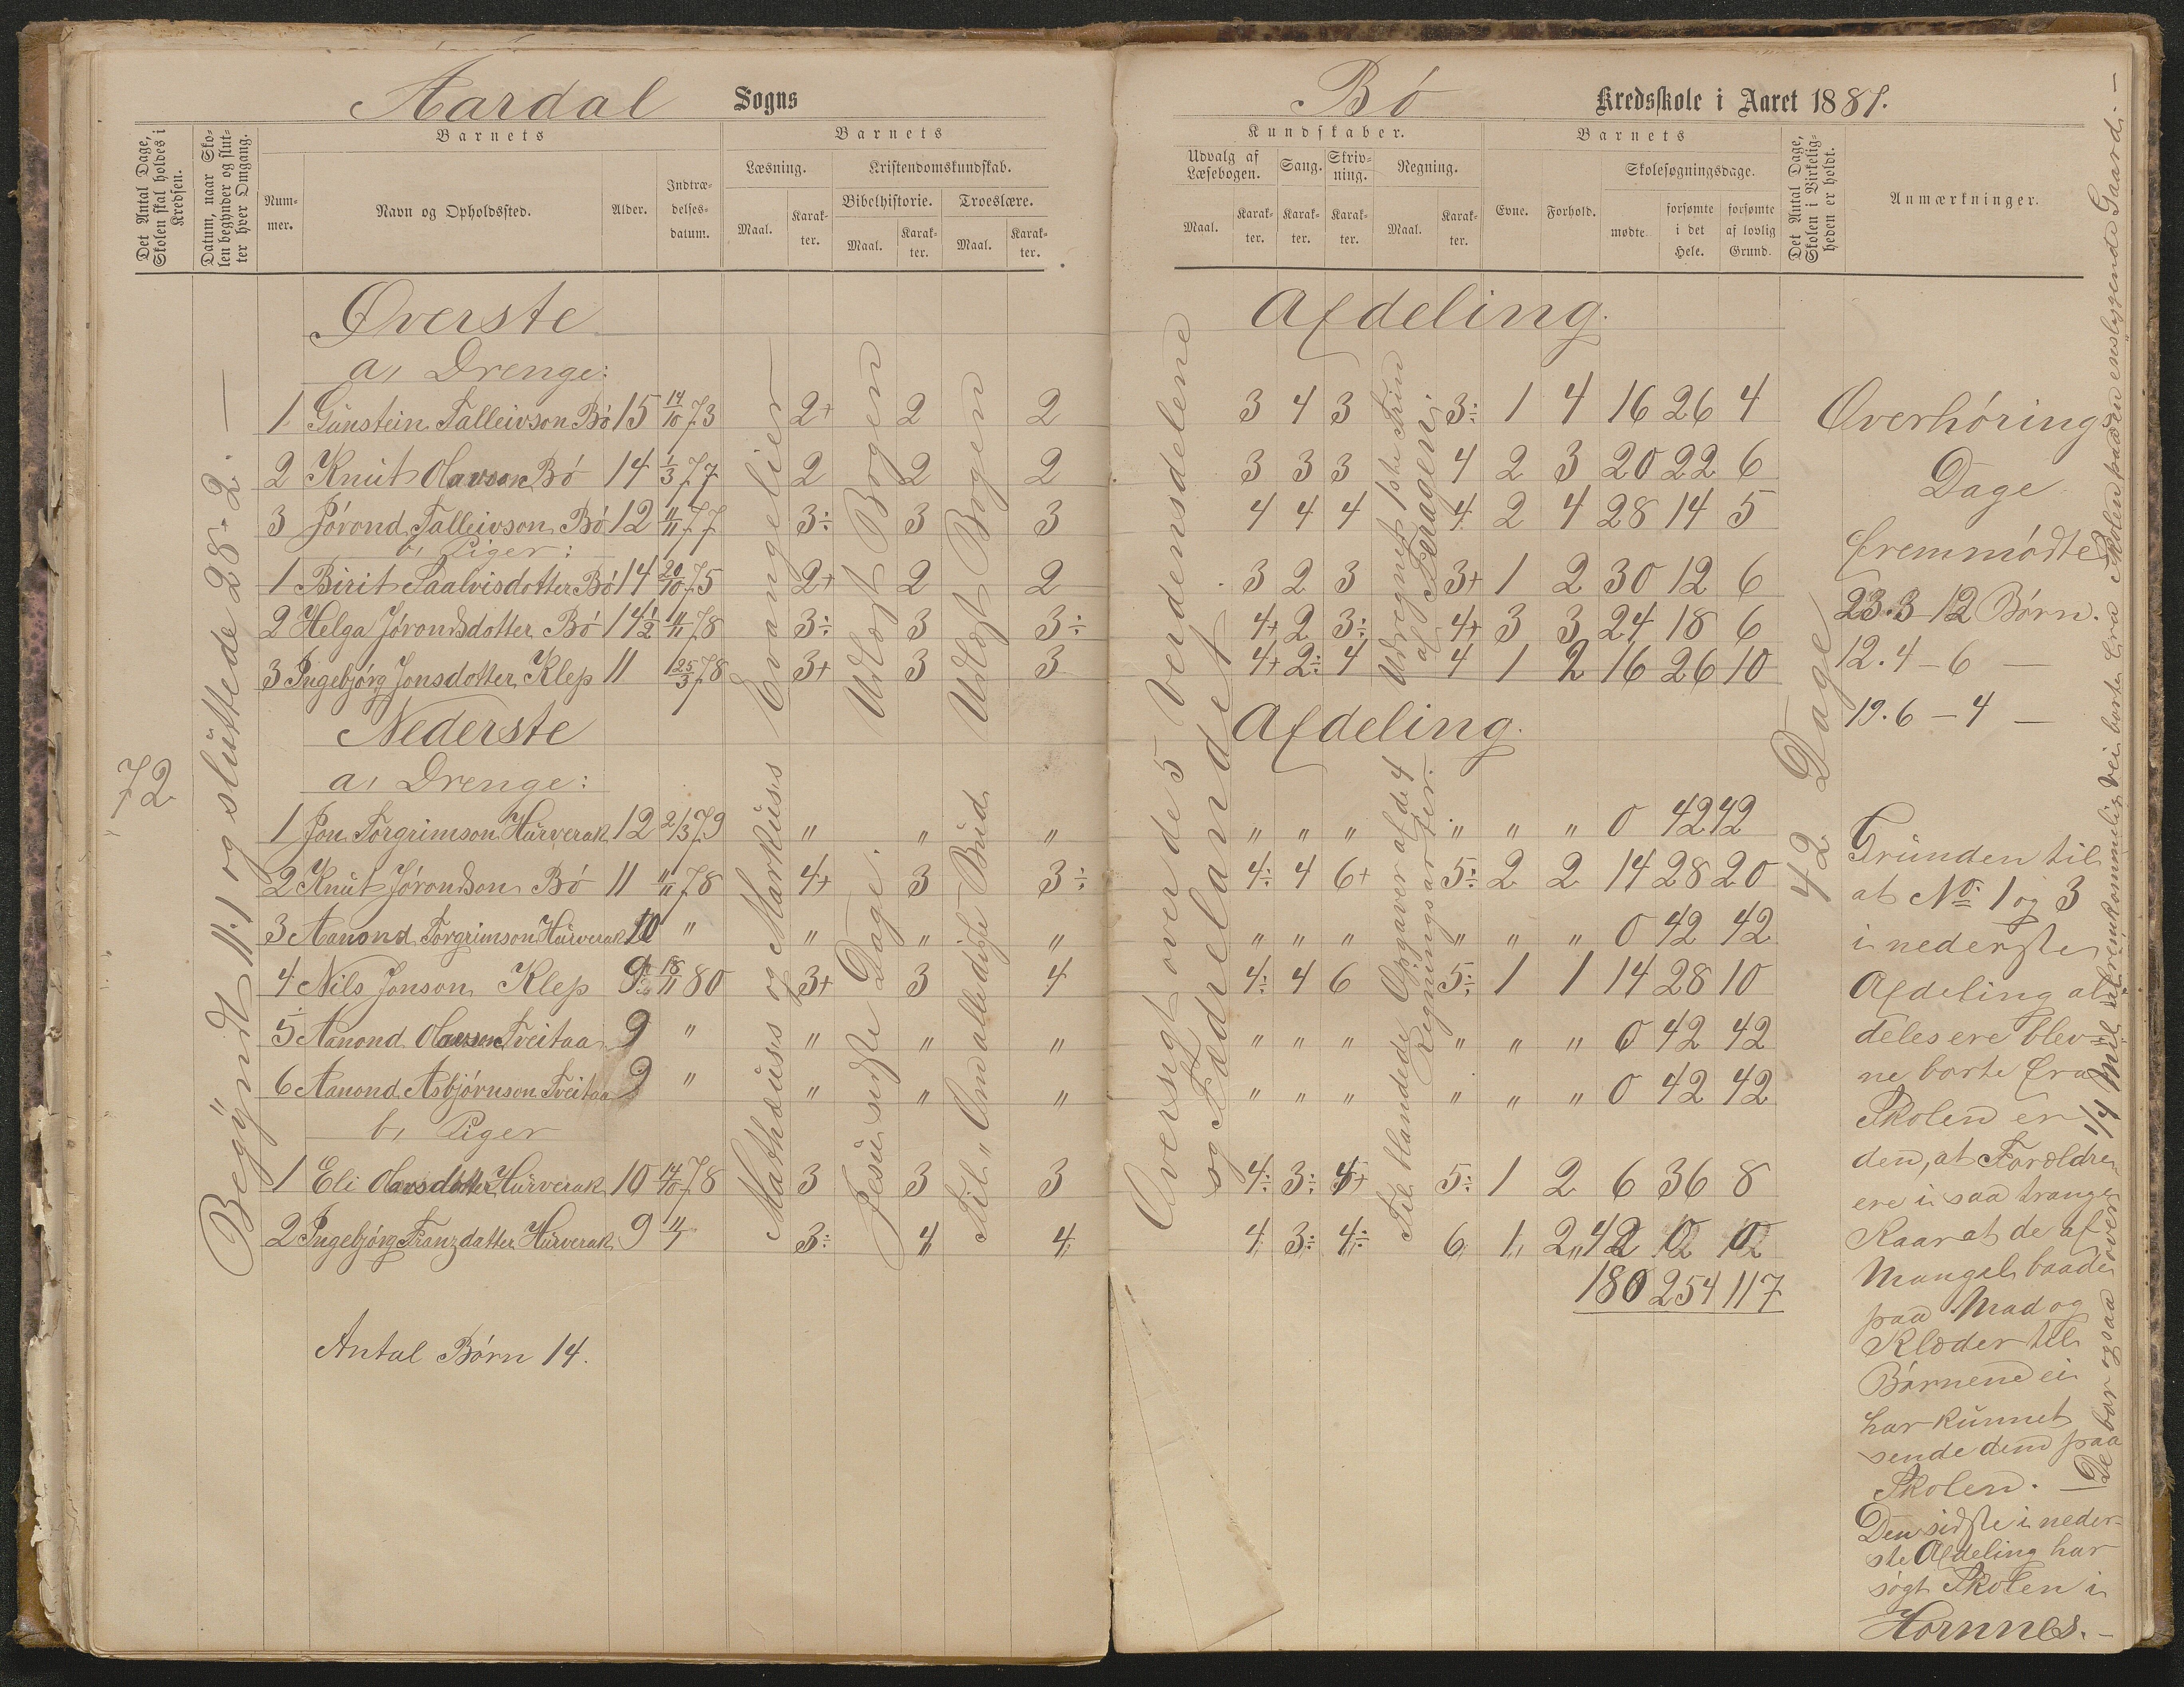 Aardal Sogns
Det Antal Dage, Skolen skal holdes i Kredsen.
Datum, naar Skolen begynder og slutter hver Omgang.
Barnets
Nummer.
Navn og Opholdssted.
Alder.
Indtrædelsesdatum.
Barnets
Læsning.
Kristendomskundskab.
Bibelhistorie. Troeslære.
Maal. Karakter. Maal. Karakter. Maal. Karakter.
72
Begyndt 11.1 og sluttede 28.2. —
Øverste
a, Drenge:
1 Gunstein Talleivson Bø 15 14/10 73 2+ 2 2
2 Knut Olavson Bø 14 1/3 77 2 2 2
3 Jórond Talleivson Bø 12 11/11 77 3÷ 3 3
b, Piger:
1 Birit Saalvisdotter Bø 14 20/10 75 2+ 2 2
2 Helga Jórondsdotter Bø 14½ 11/11 78 3÷ 3 3÷
3 Ingebjørg Jonsdotter Klep 11 25/3 78 3+ 3 3
Nederste
a, Drenge:
1 Jon Torgrimson Hurverak 12 2/3 79 " " "
2 Knut Jórondson Bø 11 11/11 78 4+ 3 3÷
3 Aanond Torgrimson Hurverak 10 " " " "
4 Nils Jonson Klep 9 18/11 80 3+ 3 4
5 Aanond Olavson Tveitaa 9 " " " "
6 Aanond Asbjørnson Tveitaa 9 " " " "
b, Piger
1 Eli Olavsdotter Hurverak 10 14/10 78 3 3 3
2 Ingebjørg Franzdatter Hurverak 9 11/1 3÷ 4 4
Antal Børn 14.
Evangelier
Udlagt Bogen
Udlagt Bogen
Mathæuss og Markuss
Jesu sidste Dage.
Til „Om alle disse Bud
Bø Kredsskole i Aaret 1881.
Kundskaber.
Udvalg af Læsebogen.
Sang. Skrivning. Regning.
Maal. Karakter. Karakter. Karakter. Maal. Karakter.
Barnets
Evne. Forhold.
Skolesøgningsdage.
mødte. forsømte i det Hele. forsømte af lovlig Grund.
Det Antal Dage, Skolen i Virkeligheden er holdt.
Anmærkninger.
Afdeling.
3 4 3 3÷ 1 4 16 26 4
3 3 3 4 2 3 20 22 6
4 4 4 4 2 4 28 14 5
3 2 3 3+ 1 2 30 12 6
4+ 2 3÷ 4+ 3 3 24 18 6
4+ 2÷ 4 4 1 2 16 26 10
Afdeling.
" " " " " " 0 42 42
4÷ 4 6+ 5÷ 2 2 14 28 20
" " " " " " 0 42 42
4÷ 4 6 5÷ 1 1 14 28 10
" " " " " " 0 42 42
" " " " " " 0 42 42
4÷ 3÷ 4+ 5÷ 1 2 6 36 8
4 3÷ 4÷ 6 1 2 42 0 0
180 254 117
Oversigt over de 5 Verdensdelene
og Fædrelandet
Udregnet 1ste Trin
af
Til blandede Opgaver af de 4
Regningsarter.
42 Dage
Overhørings
Dage
fremmødte
23.3 12 Børn.
12.4 – 6 —
19.6 – 4 —
Grunden til
at No. 1 og 3
i nederste
Afdeling al-
deles ere blev-
ne borte fra
Skolen er
den, at Forældre
ere i saa trange
Kaar at de af
Mangel baade
paa Mad og
Klæder til
Børnene ei
har kunnet
sende dem paa
Skolen. —
Den sidste i neder-
ste Afdeling har
søgt Skolen i
Hornnes. –
De bor ogsaa over 1/4 Mil ufremkommelig Vei borte fra Skolen paa en ensliggende Gaard. —